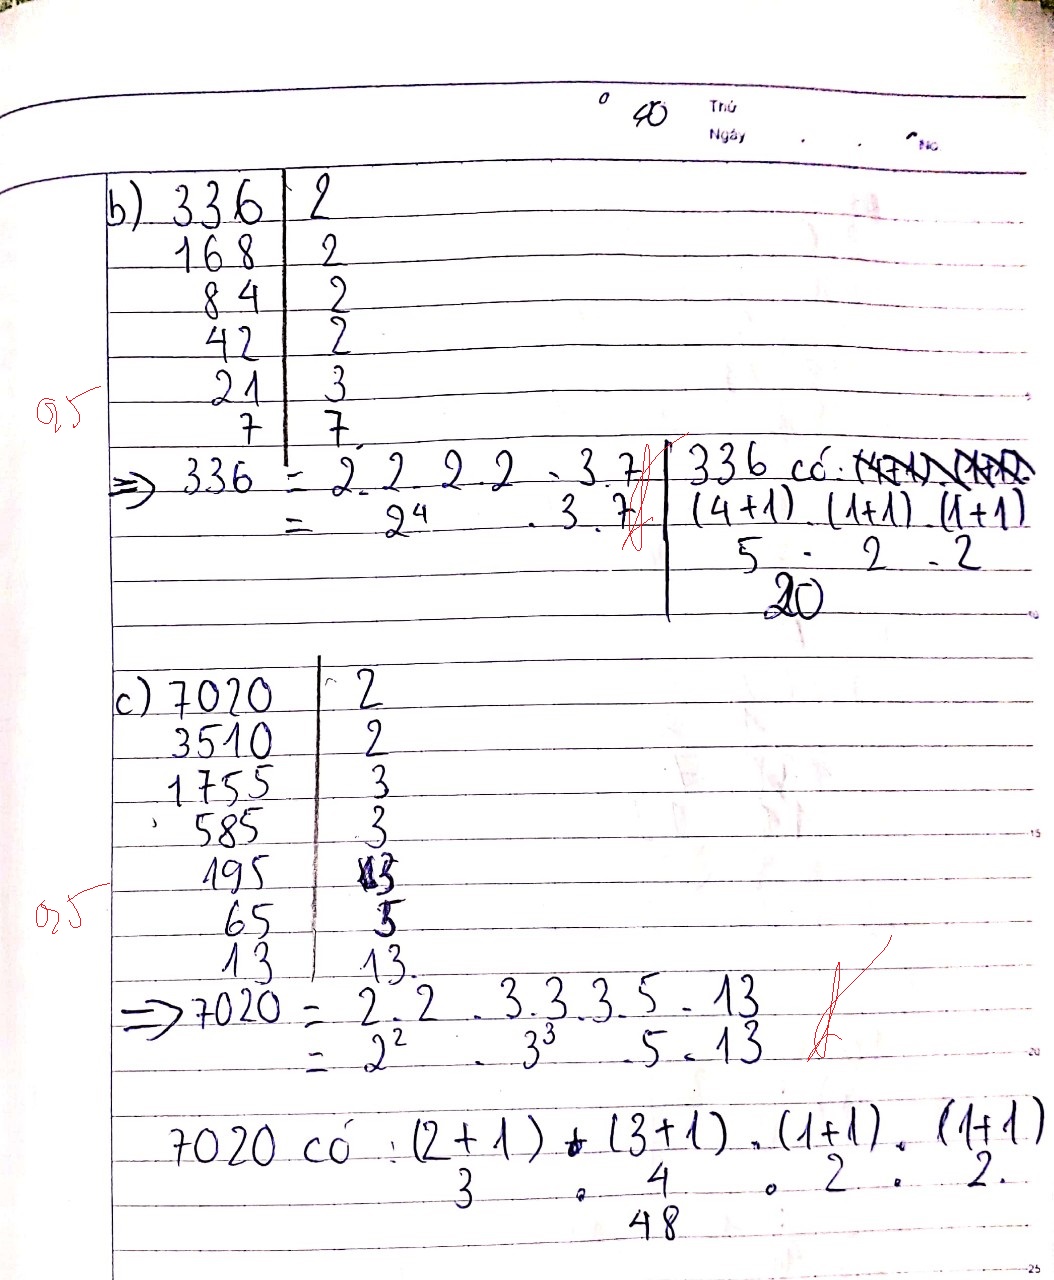 40 Thứ
Ngày . . No.
b) 336 | 2
168 | 2
84 | 2
42 | 2
21 | 3
0,5
7 | 7
=> 336 = 2.2.2.2.3.7 | 336 có:
= 2⁴.3.7 | (4+1).(1+1).(1+1)
5.2.2
20
c) 7020 | 2
3510 | 2
1755 | 3
585 | 3
195 | 3
0,5
65 | 5
13 | 13
=> 7020 = 2.2.3.3.3.5.13
= 2².3³.5.13
7020 có: (2+1).(3+1).(1+1).(1+1)
3.4.2.2.
48
5
10
15
20
25